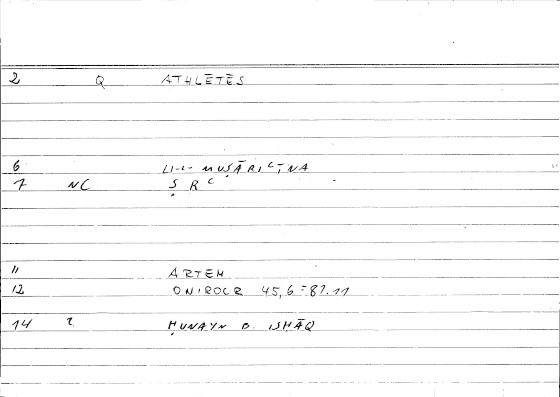 2 Q ATHLĒTĒS
6 LI-L-MUṢĀRIʿĪNA
7 NC Ṣ R ʿ
11 ARTEM
12 ONIROCR 45,6 = 87.11
14 2 ḤUNAYN B. ISḤĀQ